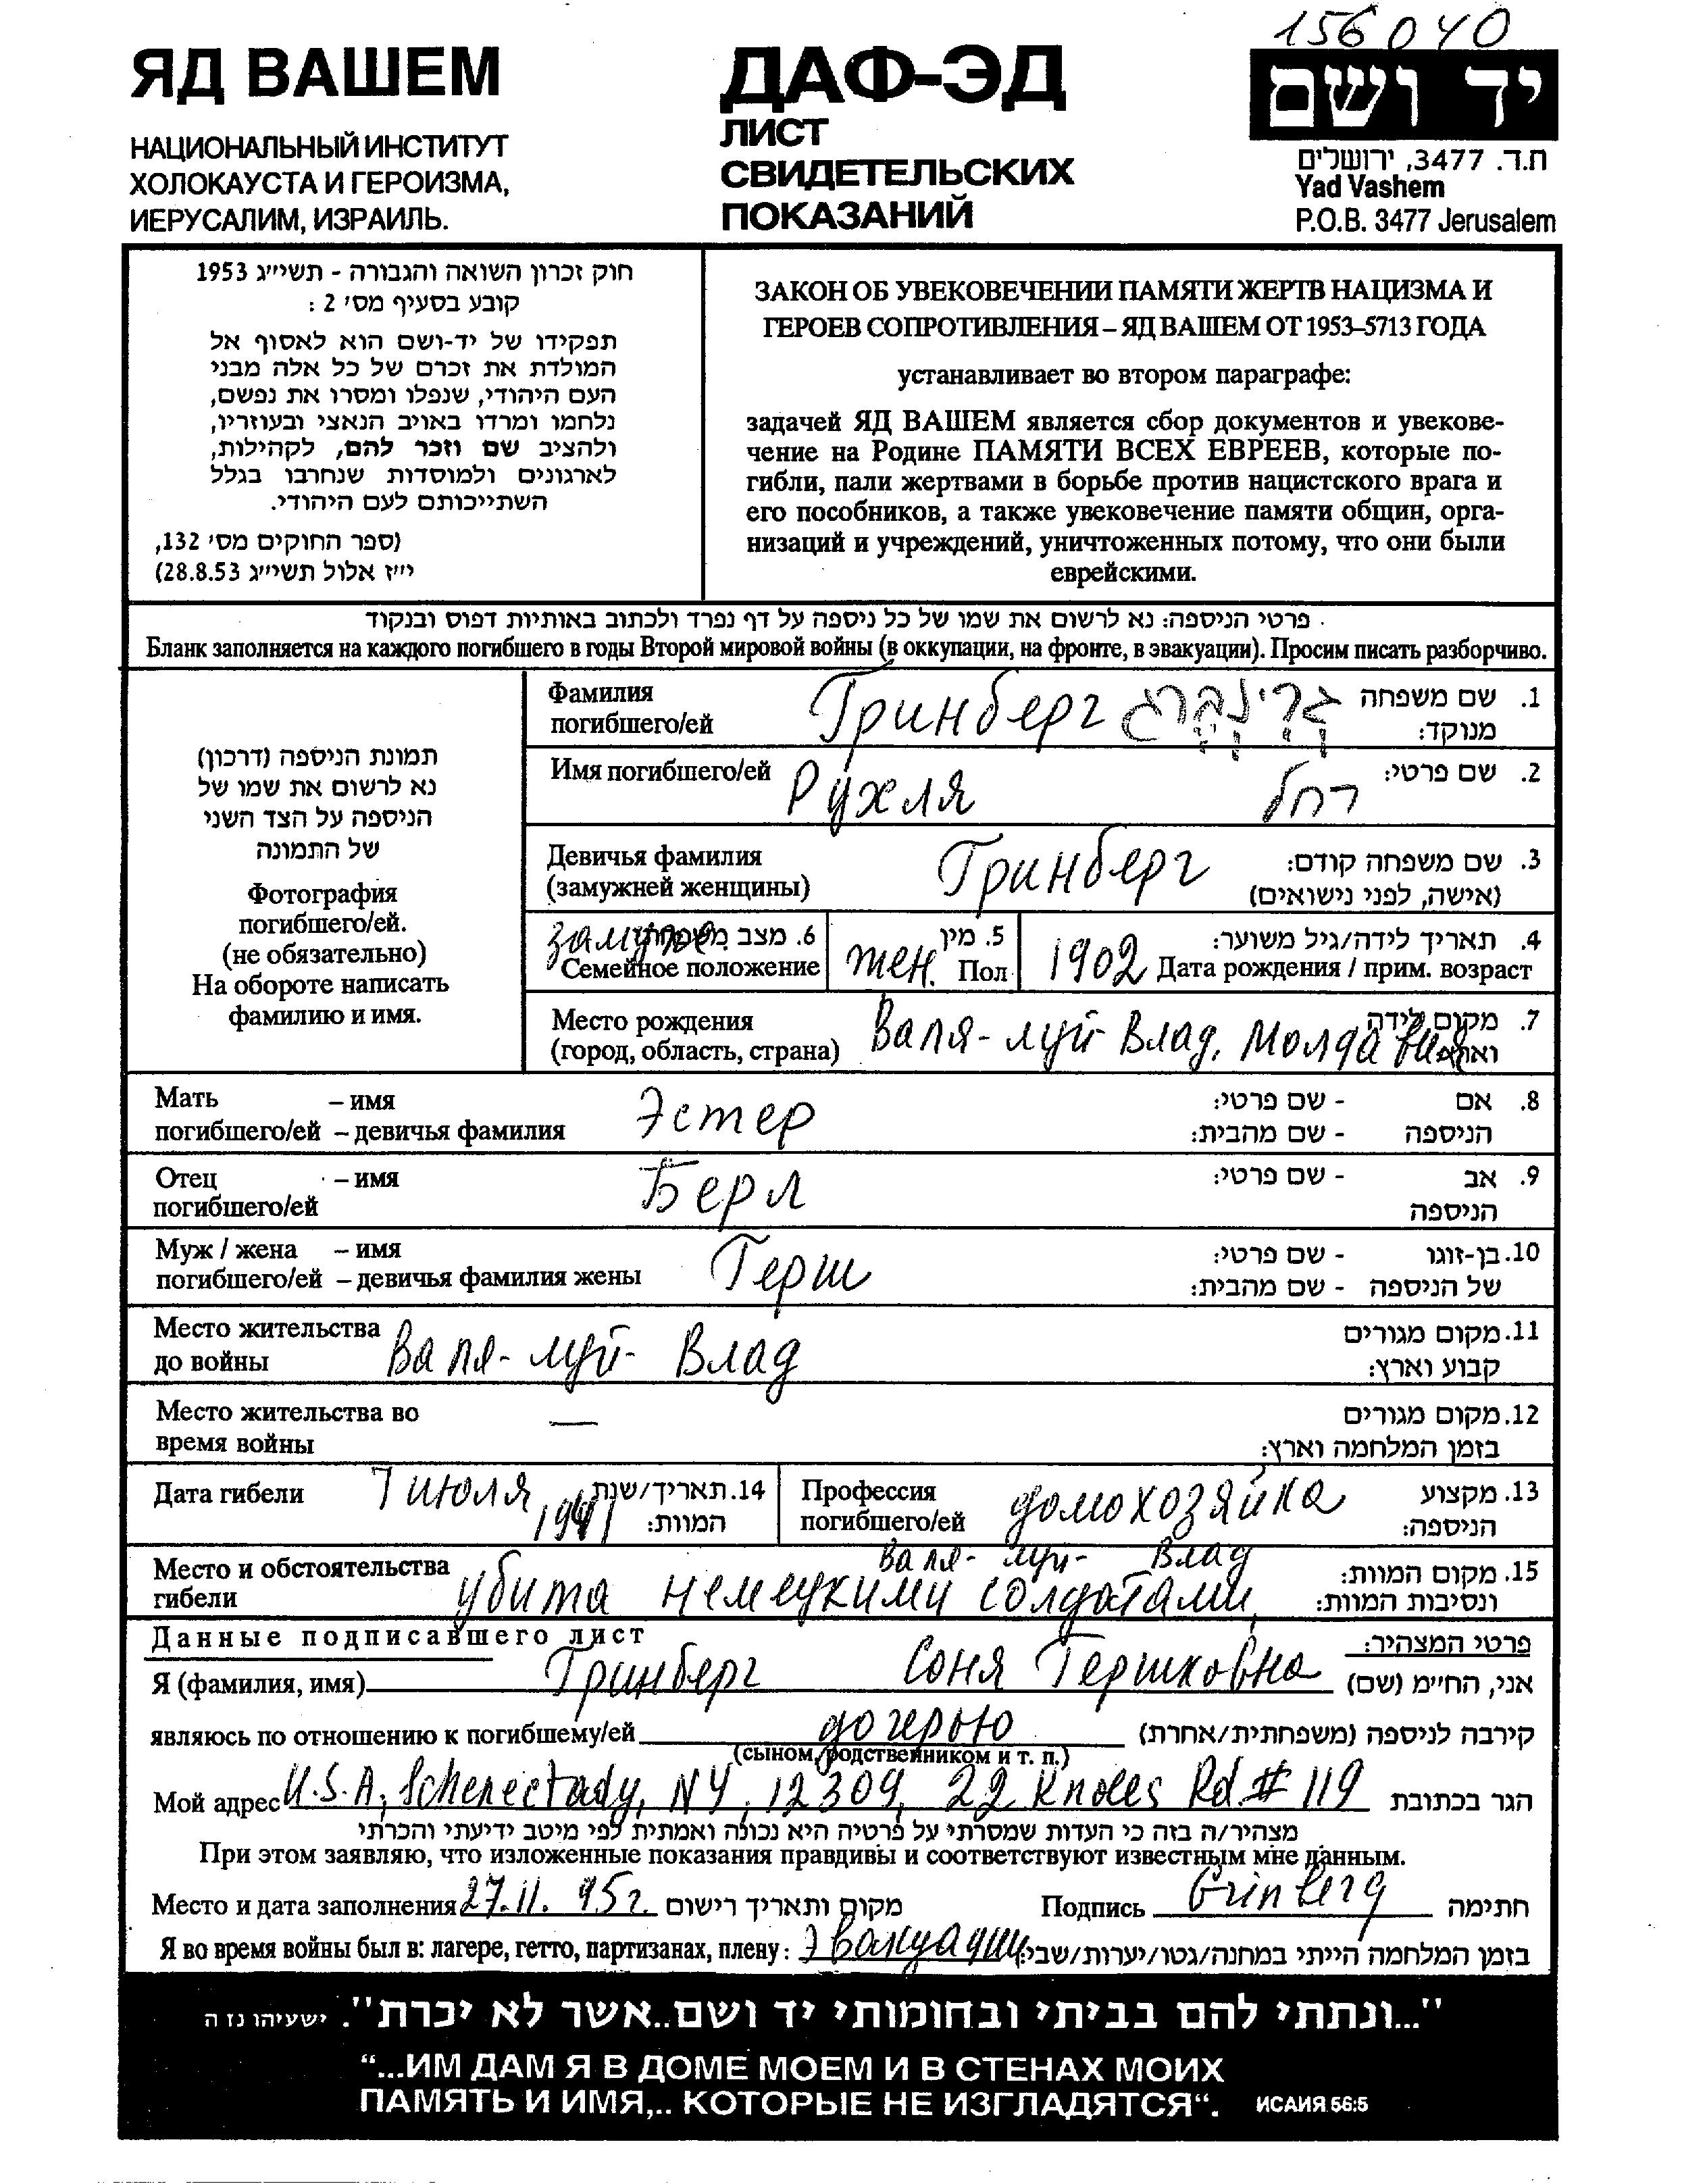 156040
ЯД ВАШЕМ
НАЦИОНАЛЬНЫЙ ИНСТИТУТ
ХОЛОКАУСТА И ГЕРОИЗМА,
ИЕРУСАЛИМ, ИЗРАИЛЬ.
ДАФ-ЭД
ЛИСТ
СВИДЕТЕЛЬСКИХ
ПОКАЗАНИЙ
יד ושם
ת.ד. 3477, ירושלים
Yad Vashem
P.O.B. 3477 Jerusalem
חוק זכרון השואה והגבורה - תשי״ג 1953
קובע בסעיף מס׳ 2 :
תפקידו של יד-ושם הוא לאסוף אל
המולדת את זכרם של כל אלה מבני
העם היהודי, שנפלו ומסרו את נפשם,
נלחמו ומרדו באויב הנאצי ובעוזריו,
ולהציב שם וזכר להם, לקהילות,
לארגונים ולמוסדות שנחרבו בגלל
השתייכותם לעם היהודי.
(ספר החוקים מס׳ 132,
י״ז אלול תשי״ג 28.8.53)
ЗАКОН ОБ УВЕКОВЕЧЕНИИ ПАМЯТИ ЖЕРТВ НАЦИЗМА И
ГЕРОЕВ СОПРОТИВЛЕНИЯ – ЯД ВАШЕМ ОТ 1953–5713 ГОДА
устанавливает во втором параграфе:
задачей ЯД ВАШЕМ является сбор документов и увекове-
чение на Родине ПАМЯТИ ВСЕХ ЕВРЕЕВ, которые по-
гибли, пали жертвами в борьбе против нацистского врага и
его пособников, а также увековечение памяти общин, орга-
низаций и учреждений, уничтоженных потому, что они были
еврейскими.
פרטי הניספה: נא לרשום את שמו של כל ניספה על דף נפרד ולכתוב באותיות דפוס ובנקוד
Бланк заполняется на каждого погибшего в годы Второй мировой войны (в оккупации, на фронте, в эвакуации). Просим писать разборчиво.
תמונת הניספה (דרכון)
נא לרשום את שמו של
הניספה על הצד השני
של התמונה
Фотография
погибшего/ей.
(не обязательно)
На обороте написать
фамилию и имя.
Фамилия
погибшего/ей Гринберг גרינברג 1. שם משפחה
מנוקד:
Имя погибшего/ей Рухля רחל 2. שם פרטי:
Девичья фамилия
(замужней женщины) Гринберг 3. שם משפחה קודם:
(אישה, לפני נישואים)
замужем 6. מצב משפחתי
Семейное положение
жен. 5. מין
Пол
1902 4. תאריך לידה/גיל משוער:
Дата рождения / прим. возраст
Место рождения
(город, область, страна) Валя-луй Влад, Молдавия 7. מקום לידה
וארץ:
Мать – имя
погибшего/ей – девичья фамилия Эстер 8. אם - שם פרטי:
הניספה - שם מהבית:
Отец – имя
погибшего/ей Берл 9. אב - שם פרטי:
הניספה
Муж / жена – имя
погибшего/ей – девичья фамилия жены Герш 10. בן-זוגו - שם פרטי:
של הניספה - שם מהבית:
Место жительства
до войны Валя-луй-Влад 11. מקום מגורים
קבוע וארץ:
Место жительства во
время войны — 12. מקום מגורים
בזמן המלחמה וארץ:
Дата гибели 7 июля 1941 14. תאריך/שנת
המוות:
Профессия
погибшего/ей домохозяйка 13. מקצוע
הניספה:
Место и обстоятельства
гибели Валя-луй-Влад
убита немецкими солдатами, 15. מקום המוות:
ונסיבות המוות:
Данные подписавшего лист פרטי המצהיר:
Я (фамилия, имя) Гринберг Соня Гершковна אני, הח״מ (שם)
являюсь по отношению к погибшему/ей дочерью קירבה לניספה (משפחתית/אחרת)
(сыном, родственником и т. п.)
Мой адрес U.S.A, Schenectady, NY, 12309, 22 Knolls Rd. # 119 הגר בכתובת
מצהיר/ה בזה כי העדות שמסרתי על פרטיה היא נכונה ואמתית לפי מיטב ידיעתי והכרתי
При этом заявляю, что изложенные показания правдивы и соответствуют известным мне данным.
Место и дата заполнения 27.11.95г. מקום ותאריך רישום Подпись Grinberg חתימה
Я во время войны был в: лагере, гетто, партизанах, плену: Эвакуации בזמן המלחמה הייתי במחנה/גטו/יערות/שבי:
״...ונתתי להם בביתי ובחומותי יד ושם..אשר לא יכרת״. ישעיהו נז ה
“...ИМ ДАМ Я В ДОМЕ МОЕМ И В СТЕНАХ МОИХ
ПАМЯТЬ И ИМЯ,.. КОТОРЫЕ НЕ ИЗГЛАДЯТСЯ“. ИСАИЯ 56:5